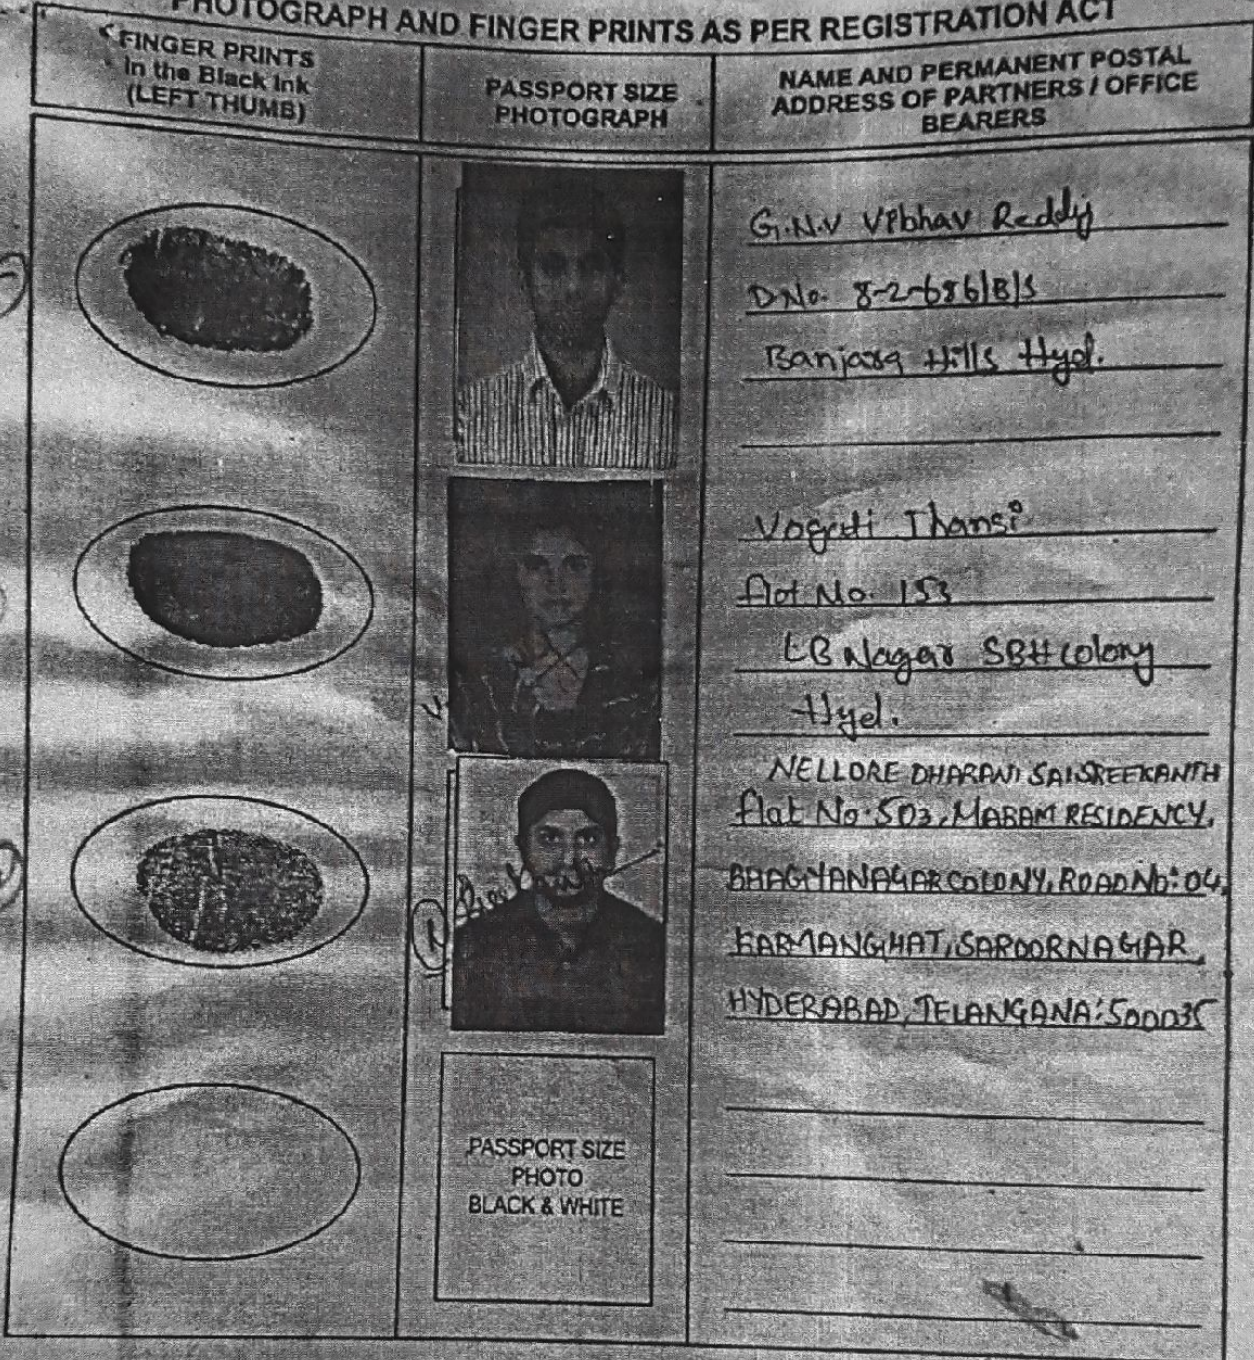 PHOTOGRAPH AND FINGER PRINTS AS PER REGISTRATION ACT
FINGER PRINTS
In the Black Ink
(LEFT THUMB)
PASSPORT SIZE
PHOTOGRAPH
NAME AND PERMANENT POSTAL
ADDRESS OF PARTNERS / OFFICE
BEARERS
G.N.V Vibhav Reddy
DNo. 8-2-686/B/S
Banjara Hills Hyd.
Jhansi
flot No. 153
LB Nagar SBH colony
Hyd.
NELLORE DHARANI SAISREEKANTH
flat No. 503, MARAM RESIDENCY,
BHAGYANAGAR COLONY, ROAD No: 04,
KARMANGHAT, SAROORNAGAR,
HYDERABAD, TELANGANA: 500035
PASSPORT SIZE
PHOTO
BLACK & WHITE